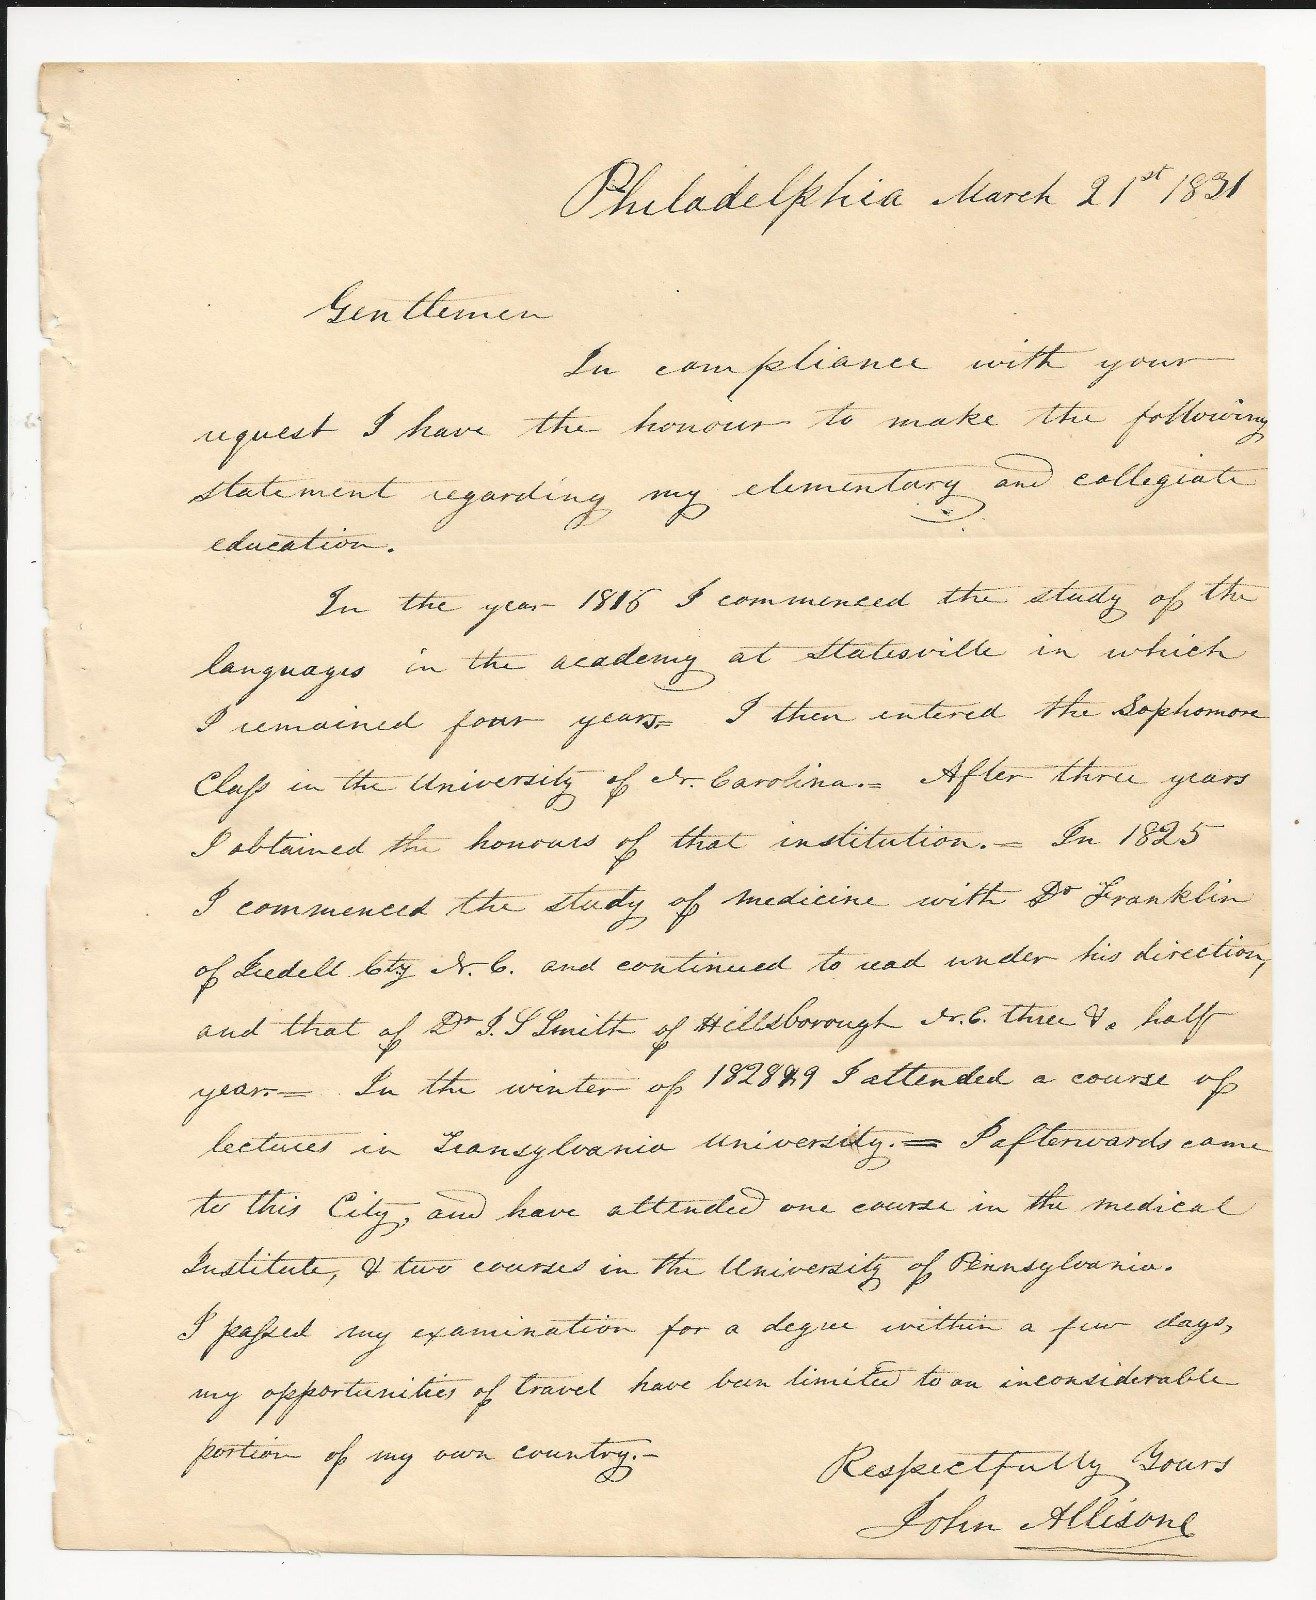 Philadelphia March 21st 1831
Gentlemen
In compliance with your
request I have the honour to make the following
statement regarding my elementary and collegiate
education.
In the year 1816 I commenced the study of the
languages in the academy at Statesville in which
I remained four years= I then entered the Sophomore
Class in the University of Nr. Carolina.= After three years
I obtained the honours of that institution.= In 1825
I commenced the study of medicine with Dr Franklin
of Iredell Cty N. C. and continued to read under his direction,
and that of Dr J. S Smith of Hillsborough Nr. C. three &. half
year= In the winter of 1828&9 I attended a course of
lectures in Transylvania University.= I afterwards came
to this City, and have attended one course in the medical
Institute, & two courses in the University of Pennsylvania.
I passed my examination for a degree within a few days,
my opportunities of travel have been limited to an inconsiderable
portion of my own country.-
Respectfully Yours
John Allison